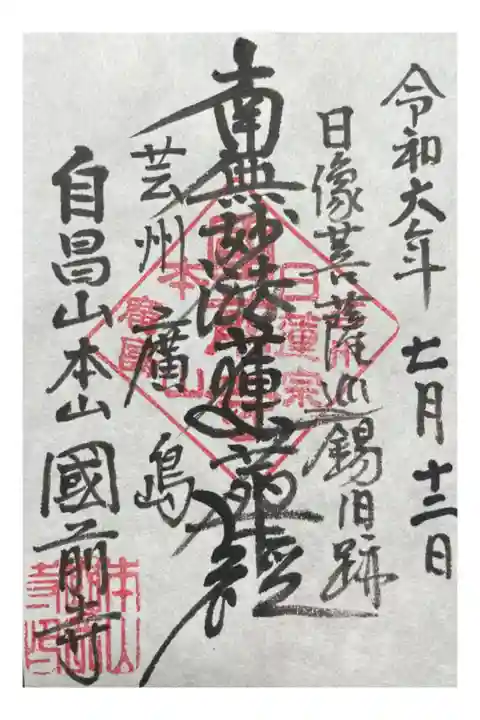 令和六年 七月 十三日
日像菩薩巡錫旧跡
南無妙法蓮華経
芸州 廣島
自昌山本山 國前寺
日蓮宗
本山
廣島
本山